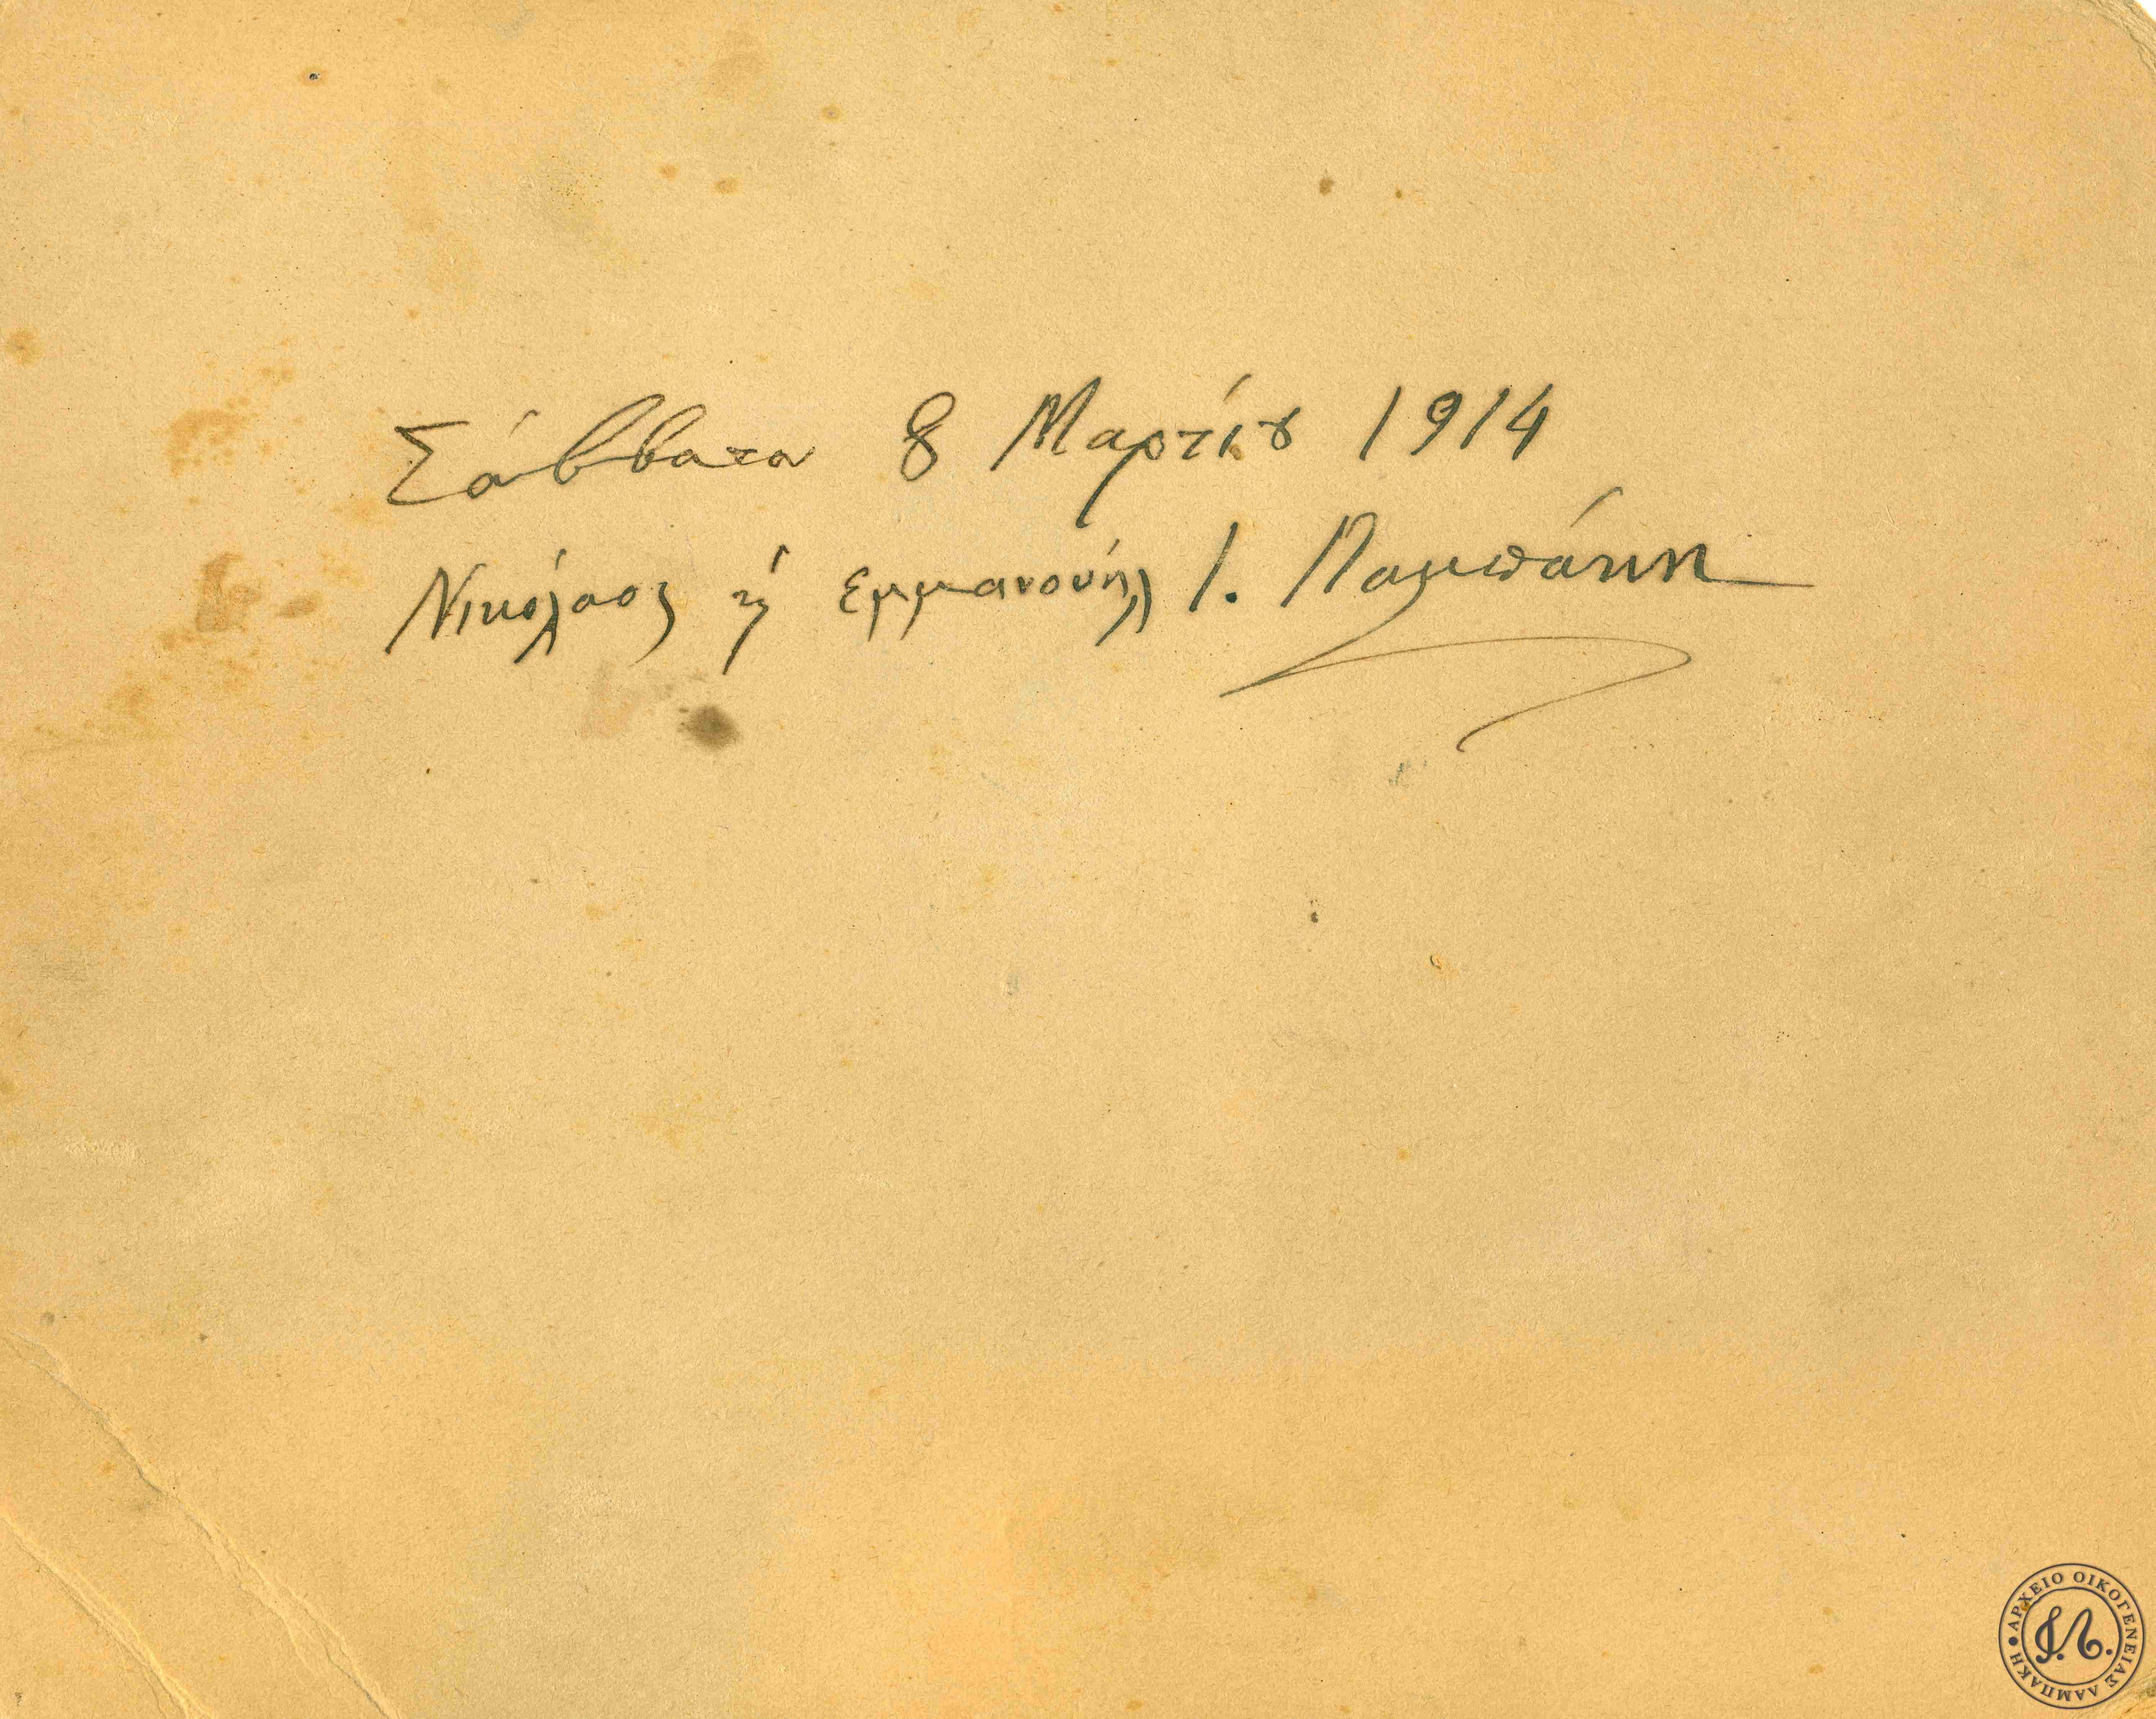 Σάββατα 8 Μαρτίȣ 1914
Νικόλαος ϗ Εμμανουήλ Ι. Λαμπάκη
ΑΡΧΕΙΟ ΟΙΚΟΓΕΝΕΙΑΣ ΛΑΜΠΑΚΗ